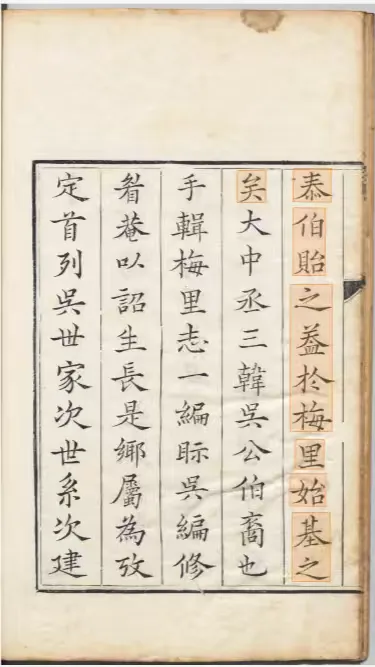 泰伯貽之葢於梅里始基之
矣大中丞三韓吳公伯裔也
手輯梅里志一編眎吳編修
菴以詔生長是鄉屬為攷
定首列吳世家次世系次建